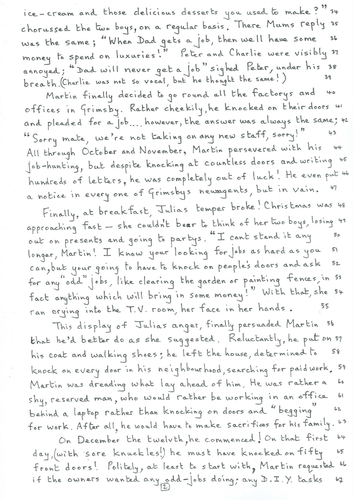 ice-cream and those delicious desserts you used to make?" 34
chorussed the two boys, on a regular basis. There Mums reply 35
was the same; "When Dad gets a job, then we'll have some 36
money to spend on luxuries!" Peter and Charlie were visibly 37
annoyed; "Dad will never get a job" sighed Peter, under his 38
breath. (Charlie was not so vocal, but he thought the same!) 39
Martin finally decided to go round all the factorys and 40
offices in Grimsby. Rather cheekily, he knocked on their doors 41
and pleaded for a job.... however, the answer was always the same; 42
"Sorry mate, we're not taking on any new staff, sorry!" 43
All through October and November, Martin persevered with his 44
job-hunting, but despite knocking at countless doors and writing 45
hundreds of letters, he was completely out of luck! He even put 46
a notice in every one of Grimsbys newsagents, but in vain. 47
Finally, at breakfast, Julias temper broke! Christmas was 48
approaching fast - she couldn't bear to think of her two boys, losing 49
out on presents and going to partys. "I cant stand it any 50
longer, Martin! I know your looking for jobs as hard as you 51
can, but your going to have to knock on people's doors and ask 52
for any "odd" jobs, like clearing the garden or painting fences, in 53
fact anything which will bring in some money!" With that, she 54
ran crying into the T.V. room, her face in her hands. 55
This display of Julias anger, finally persuaded Martin 56
that he'd better do as she suggested. Reluctantly, he put on 57
his coat and walking shoes; he left the house, determined to 58
knock on every door in his neighbourhood, searching for paid work, 59
Martin was dreading what lay ahead of him. He was rather a 60
shy, reserved man, who would rather be working in an office 61
behind a laptop rather than knocking on doors and "begging" 62
for work. After all, he would have to make sacrifises for his family. 63
On December the twelvth, he commenced! On that first 64
day, (with sore knuckles!) he must have knocked on fifty 65
front doors! Politely, at least to start with, Martin requested 66
if the owners wanted any odd-jobs doing; any D.I.Y. tasks 67